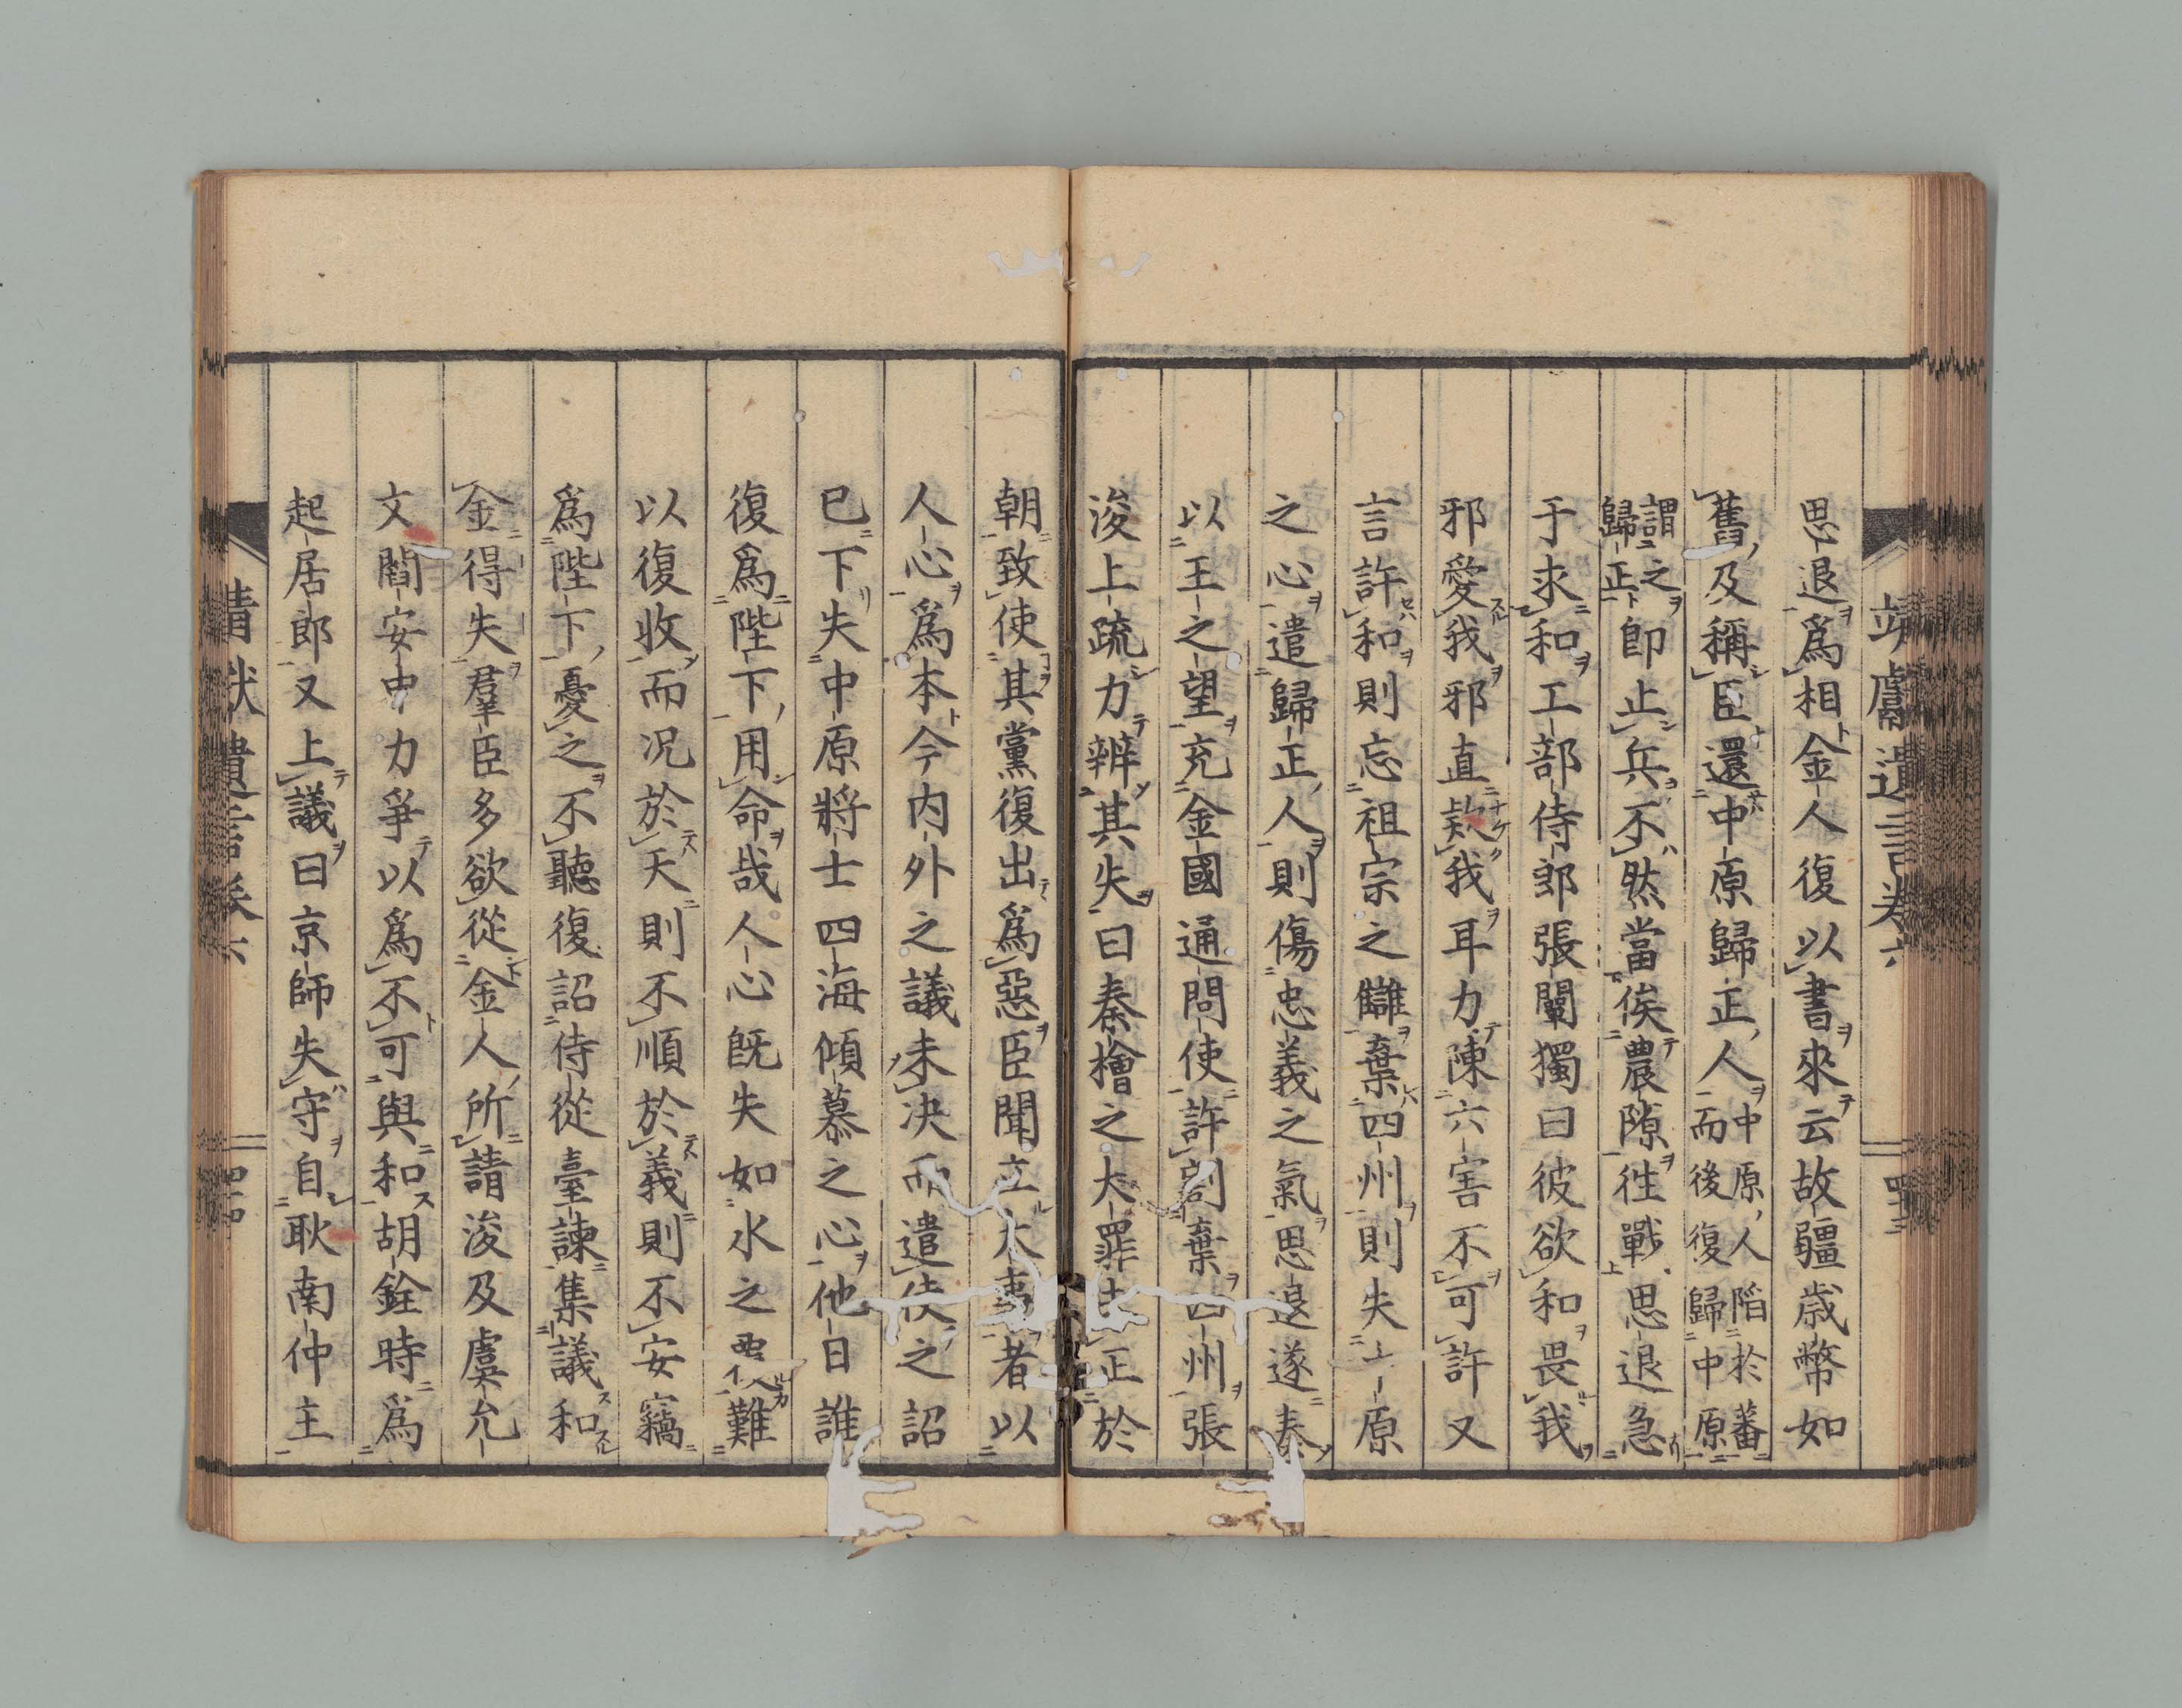 靖獻遺言卷六
思退爲相金人復以書來云故疆歲幣如
舊及稱臣還中原歸正人中原人陷於蕃
而後復歸中原
謂之
歸正即止兵不然當俟農隙徃戰思退急
于求和工部侍郎張闡獨曰彼欲和畏我
邪愛我邪直款我耳力陳六害不可許又
言許和則忘祖宗之讎棄四州則失中原
之心遣歸正人則傷忠義之氣思退遂奏
以王之望充金國通問使許割棄四州張
浚上疏力辨其失曰秦檜之大罪未正於
朝致使其黨復出爲惡臣聞立大事者以
人心爲本今内外之議未决而遣使之詔
已下失中原將士四海傾慕之心他日誰
復爲陛下用命哉人心旣失如水之覆難
以復收而况於天則不順於義則不安竊
爲陛下憂之不聽復詔侍從臺諫集議和
金得失羣臣多欲從金人所請浚及虞允
文閻安中力爭以爲不可與和胡銓時爲
起居郎又上議曰京師失守自耿南仲主
靖獻遺言卷六